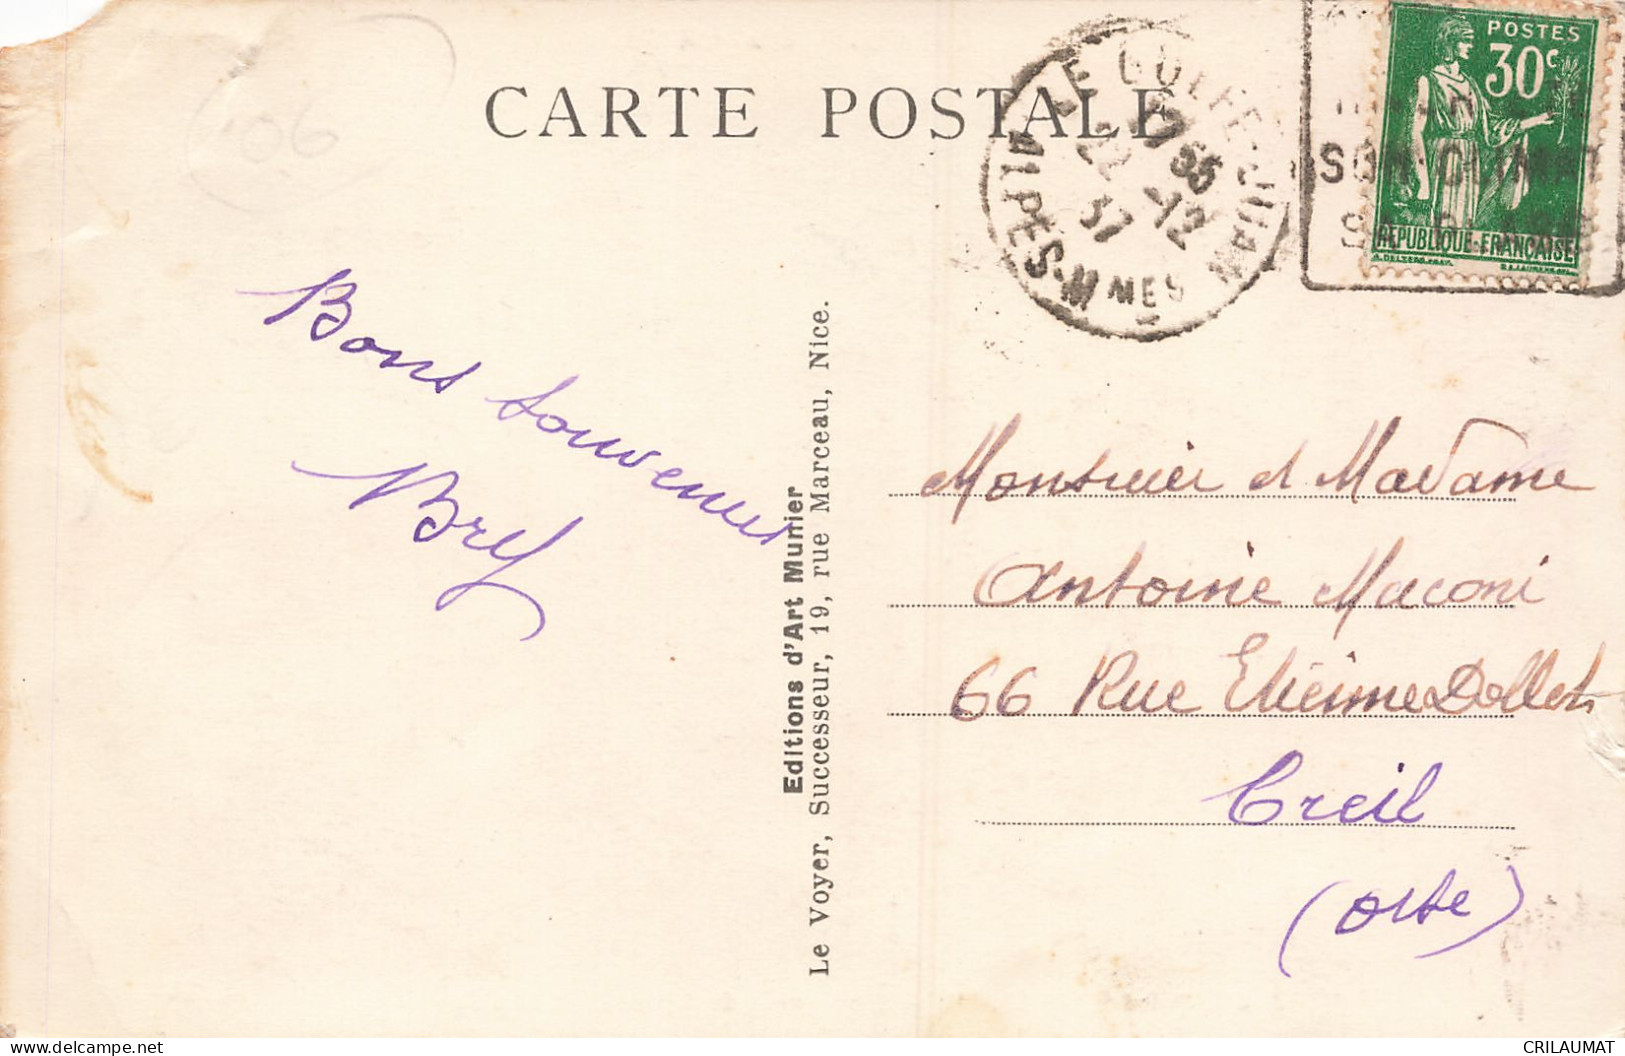 CARTE POSTALE
106
LE GOLFE-JUAN
17 55
22 -12
37
ALPES-MMES
POSTES
30c
SON CLIMAT
REPUBLIQUE-FRANCAISE
Bons souvenirs
Editions d'Art Munier
Le Voyer, Successeur, 19, rue Marceau, Nice.
Monsieur et Madame
Antoine Maconi
66 Rue Etienne Dollet
Creil
(Oise)
CRILAUMAT
www.delcampe.net